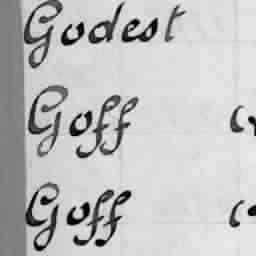 Godest
Goff
Goff